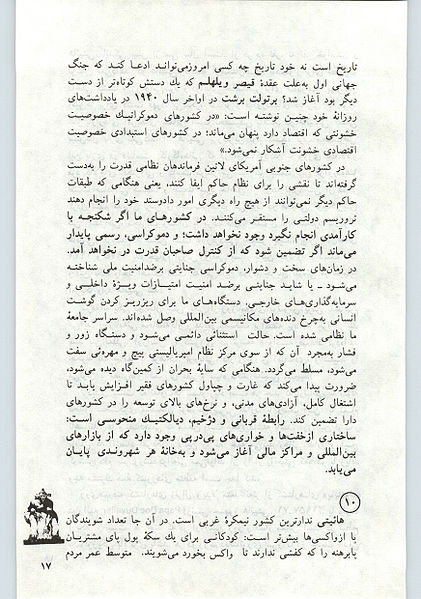 تاریخ است نه خود تاریخ چه کسی امروزمی‌تواند ادعا کند که جنگ
جهانی اول به‌علت عقدهٔ قیصر ویلهلم که یك دستش کوتاه‌تر از دست
دیگر بود آغاز شد؟ برتولت برشت در اواخر سال ۱۹۴۰ در یادداشت‌های
روزانهٔ خود چنین نوشته است: «در کشورهای دموکراتیك خصوصیت
خشونتی که اقتصاد دارد پنهان می‌ماند؛ در کشورهای استبدادی خصوصیت
اقتصادی خشونت آشکار نمی‌شود.»
در کشورهای جنوبی آمریکای لاتین فرماندهان نظامی قدرت را به‌دست
گرفته‌اند تا نقشی را برای نظام حاکم ایفا کنند، یعنی هنگامی که طبقات
حاکم دیگر نمی‌توانند از هیچ راه دیگری امور دادوستد خود را انجام دهند
تروریسم دولتی را مستقر می‌کنند. در کشورهای ما اگر شکنجه با
کارآمدی انجام نگیرد وجود نخواهد داشت؛ و دموکراسی، رسمی پایدار
می‌ماند اگر تضمین شود که از کنترل صاحبان قدرت در نخواهد آمد.
در زمان‌های سخت و دشوار، دموکراسی جنایتی برضدامنیت ملی شناخته
می‌شود ـ یا شاید جنایتی برضد امنیت امتیازات ویژهٔ داخلی و
سرمایه‌گذاری‌های خارجی. دستگاه‌های ما برای ریزریز کردن گوشت
انسانی به‌چرخ دنده‌های مکانیسمی بین‌المللی وصل شده‌اند. سراسر جامعهٔ
ما نظامی شده است. حالت استثنائی دائمی می‌شود و دستگاه زور و
فشار به‌مجرد آن که از سوی مرکز نظام امپریالیستی پیچ و مهره‌ئی سفت
می‌شود، مسلط می‌گردد. هنگامی که سایهٔ بحران از کمین‌گاه دیده می‌شود،
ضرورت پیدا می‌کند که غارت و چپاول کشورهای فقیر افزایش یابد تا
اشتغال کامل، آزادی‌های مدنی، و نرخ‌های بالای توسعه را در کشورهای
دارا تضمین کند. رابطهٔ قربانی و دژخیم، دیالکتیك منحوسی است:
ساختاری ازخفت‌ها و خواری‌های پی‌درپی وجود دارد که از بازارهای
بین‌المللی و مراکز مالی آغاز می‌شود و به‌خانهٔ هر شهروندی پایان
می‌یابد.
۱۰
هائیتی ندارترین کشور نیمکرهٔ غربی است. در آن جا تعداد شویندگان
پا ازواکسی‌ها بیش‌تر است: کودکانی برای یك سکهٔ پول پای مشتریان
پابرهنه را که کفشی ندارند تا واکس بخورد می‌شویند. متوسط عمر مردم
۱۷